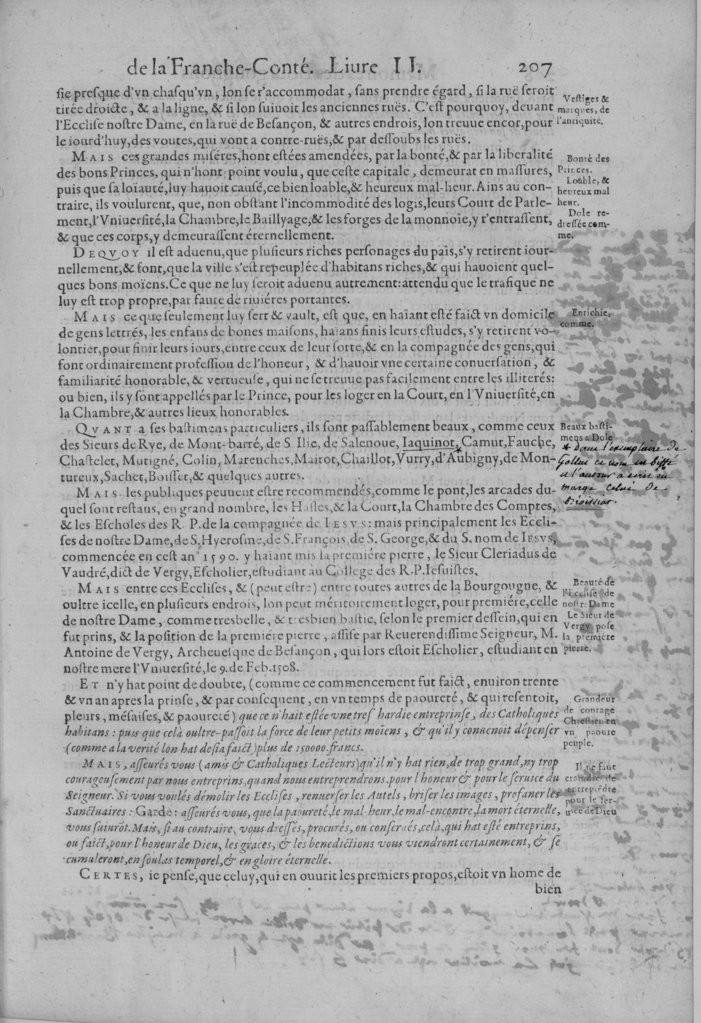 de la Franche-Conté. Liure II. 207
sie presque d'vn chasqu'vn, lon se r'accommodat, sans prendre égard, si la ruë seroit
tirée droicte, & a la ligne, & si lon suiuoit les anciennes ruës. C'est pourquoy, deuant
l'Ecclise nostre Dame, en la ruë de Besançon, & autres endrois, lon treuue encor, pour
le iourd'huy, des voutes, qui vont a contre-ruës, & par dessoubs les ruës.
Vestiges &
marques, de
l'antiquité.
MAIS ces grandes miséres, hont estées amendées, par la bonté, & par la liberalité
des bons Princes, qui n'hont point voulu, que ceste capitale, demeurat en massures,
puis que sa loïauté, luy hauoit causé, ce bien loable, & heureux mal-heur. Ains au con-
traire, ils voulurent, que, non obstant l'incommodité des logis, leurs Court de Parle-
ment, l'Vniuersité, la Chambre, le Baillyage, & les forges de la monnoie, y r'entrassent,
& que ces corps, y demeurassent éternellement.
Bonté des
Princes.
Loable, &
heureux mal
heur.
Dole re-
dressée com-
me.
DEQVOY il est aduenu, que plusieurs riches personages du païs, s'y retirent iour-
nellement, & font, que la ville s'est repeuplée d'habitans riches, & qui hauoient quel-
ques bons moïens. Ce que ne luy seroit aduenu autrement: attendu que le trafique ne
luy est trop propre, par faute de riuiéres portantes.
MAIS ce que seulement luy sert & vault, est que, en haiant esté faict vn domicile
de gens lettrés, les enfans de bones maisons, haians finis leurs estudes, s'y retirent vo-
lontier, pour finir leurs iours, entre ceux de leur sorte, & en la compagnée des gens, qui
font ordinairement profession de l'honeur, & d'hauoir vne certaine conuersation, &
familiarité honorable, & vertueuse, qui ne se treuue pas facilement entre les illiterés:
ou bien, ils y sont appellés par le Prince, pour les loger en la Court, en l'Vniuersité, en
la Chambre, & autres lieux honorables.
Enrichie,
comme.
QVANT a ses bastimens particuliers, ils sont passablement beaux, comme ceux
des Sieurs de Rye, de Mont-barré, de S. Ilie, de Salenoue, Iaquinot, Camut, Fauche,
Chastelet, Mutigné, Colin, Marenches, Mairot, Chaillot, Vurry, d'Aubigny, de Mon-
tureux, Sachet, Boisset, & quelques autres.
Beaux basti-
mens a Dole
* dans l'exemplaire de
Gollut ce nom est biffé
et l'auteur a écrit en
marge celui de
MAIS les publiques peuuent estre recommendés, comme le pont, les arcades du-
quel sont restans, en grand nombre, les Hasles, & la Court, la Chambre des Comptes,
& les Escholes des R. P. de la compagnée de IESVS: mais principalement les Eccli-
ses de nostre Dame, de S. Hyerosme, de S. François, de S. George, & du S. nom de IESVS,
commencée en cest an 1590. y haiant mis la premiére pierre, le Sieur Cleriadus de
Vaudré, dict de Vergy, Escholier, estudiant au College des R. P. Iesuistes.
MAIS entre ces Ecclises, & (peut estre) entre toutes autres de la Bourgougne, &
oultre icelle, en plusieurs endrois, lon peut méritoirement loger, pour premiére, celle
de nostre Dame, comme tresbelle, & tresbien bastie, selon le premier dessein, qui en
fut prins, & la position de la premiére pierre, assise par Reuerendissime Seigneur, M.
Antoine de Vergy, Archeuesque de Besançon, qui lors estoit Escholier, estudiant en
nostre mere l'Vniuersité, le 9. de Feb. 1508.
Beauté de
l'Ecclise de
nostre Dame
Le Sieur de
Vergy pose
la premiere
pierre.
ET n'y hat point de doubte, (comme ce commencement fut faict, enuiron trente
& vn an apres la prinse, & par consequent, en vn temps de paoureté, & qui resentoit,
pleurs, mésaises, & paoureté) que ce n'hait estée vne tresf hardie entreprinse, des Catholiques
habitans: puis que celà oultre-passoit la force de leur petits moïens, & qu'il y connenoit dépenser
(comme a la verité lon hat desia faict) plus de 150000. francs.
Grandeur
de courage
Chrestien en
vn paoure
peuple.
MAIS, asseurés vous (amis & Catholiques Lecteurs) qu'il n'y hat rien, de trop grand, ny trop
courageusement par nous entreprins, quand nous entreprendrons, pour l'honeur & pour le seruice du
Seigneur. Si vous voulés démolir les Ecclises, renuerser les Autels, briser les images, profaner les
Sanctuaires: Garde: asseurés vous, que la paoureté, le mal-heur, le mal-encontre, la mort éternelle,
vous suiurōt. Mais, si au contraire, vous dressés, procurés, ou conserués, celà, qui hat esté entreprins,
ou faict, pour l'honeur de Dieu, les graces, & les benedictions vous viendront certainement, & se
cumuleront, en soulas temporel, & en gloire éternelle.
Il ne faut
craindre de
entreprēdre
pour le ser-
uice de Dieu
CERTES, ie pense, que celuy, qui en ouurit les premiers propos, estoit vn home de
bien